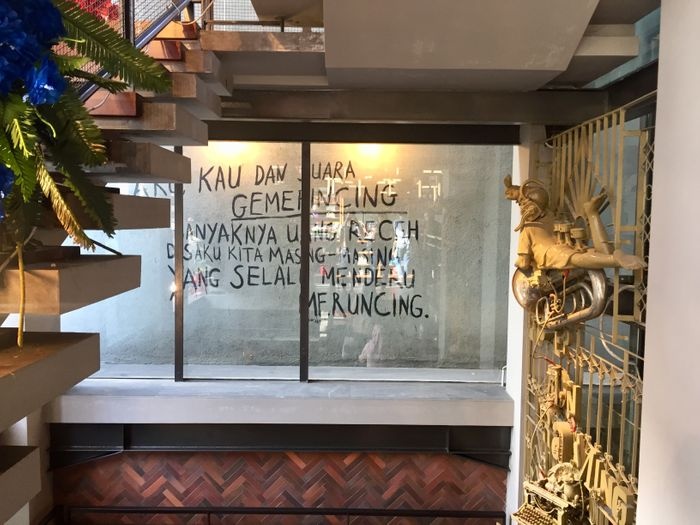 AKU KAU DAN SUARA
GEMERINCING
BANYAKNYA UANG RECEH
DISAKU KITA MASING-MASING
YANG SELALU MENDERU
MERUNCING.